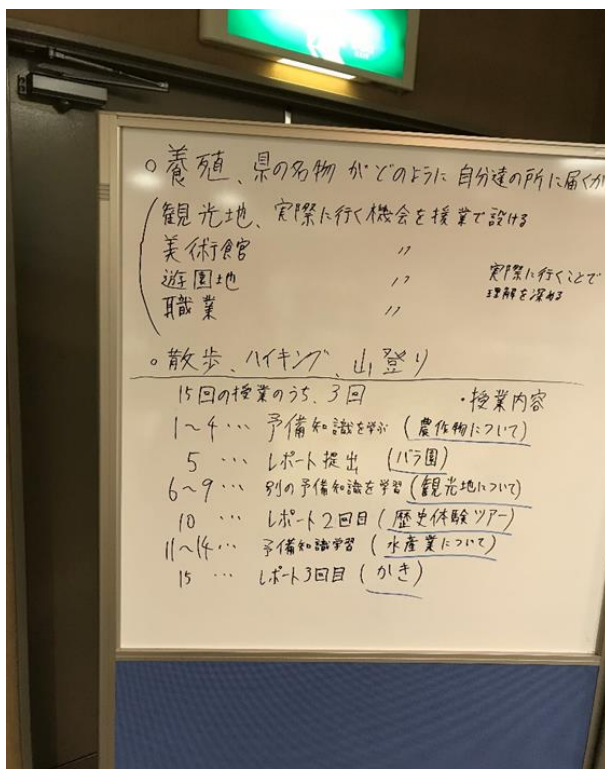 ○養殖、県の名物がどのように自分達の所に届くか
観光地、実際に行く機会を授業で設ける
美術館 〃
遊園地 〃
職業 〃
実際に行くことで
理解を深める
○散歩、ハイキング、山登り
15回の授業のうち、3回
・授業内容
1~4… 予備知識を学ぶ (農作物について)
5 … レポート提出 (バラ園)
6~9… 別の予備知識を学習 (観光地について)
10 … レポート2回目 (歴史体験ツアー)
11~14… 予備知識学習 (水産業について)
15 … レポート3回目 (かき)